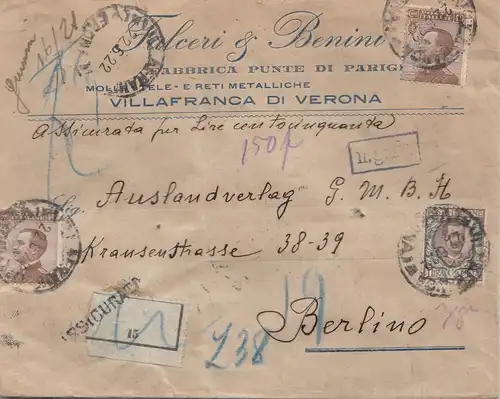 Falceri & Benini
FABBRICA PUNTE DI PARIGI
MOLLE TELE- E RETI METALLICHE
VILLAFRANCA DI VERONA
22.6.22
Assicurata per Lire centocinquanta
150
Sig.
Auslandverlag G.M.B.H
Kransenstrasse 38-39
ASSICURATA
15
19
Berlino
238